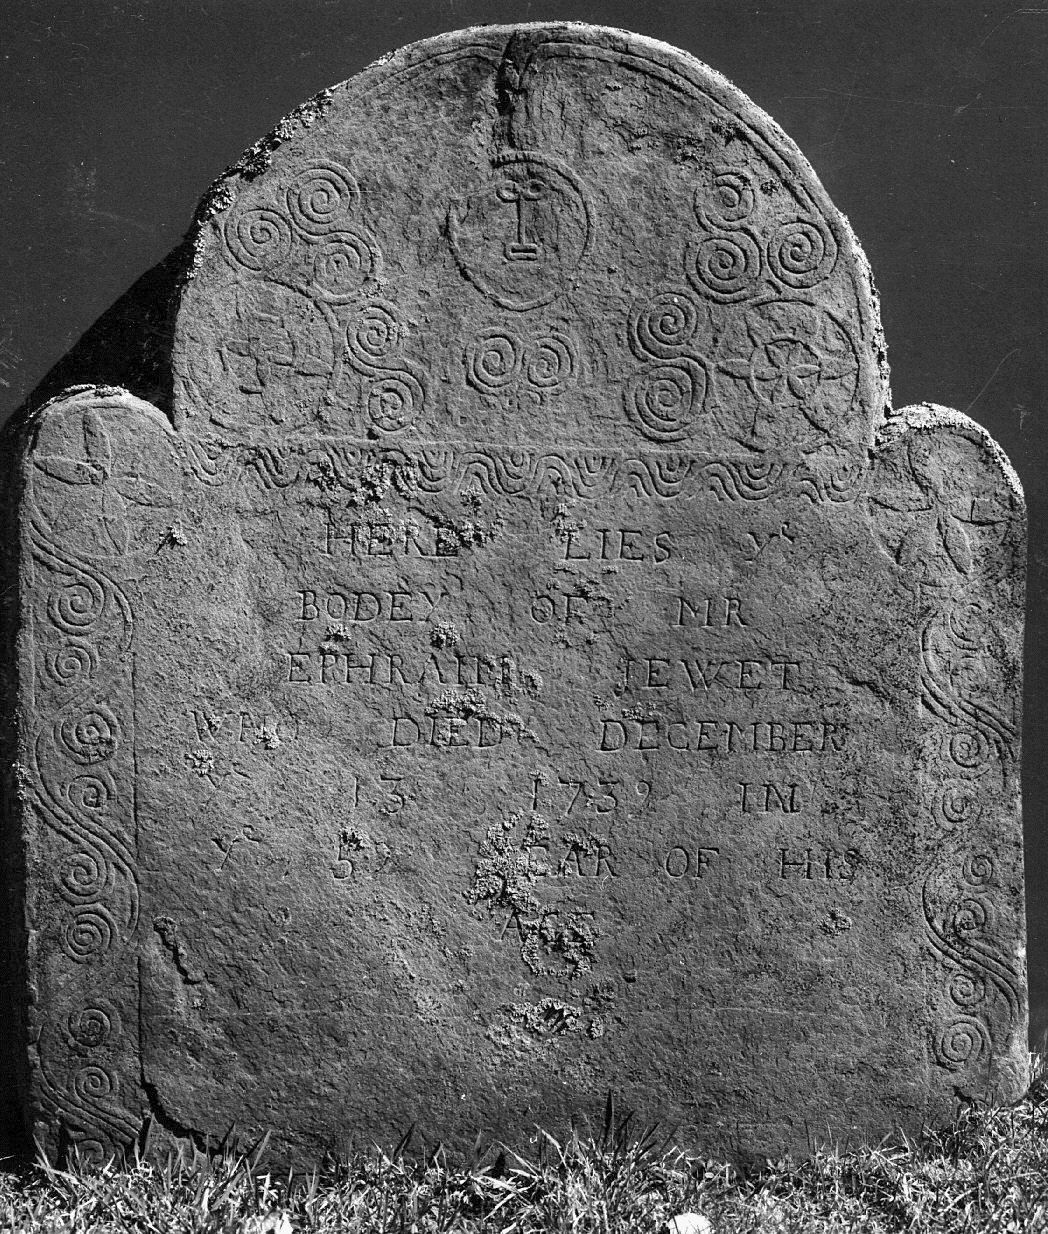 HERE LIES Yᵉ
BODEY OF MR
EPHRAIM IEWET
WHO DIED DECEMBER
13 1739 IN
Yᵉ 59 YEAR OF HIS
AGE